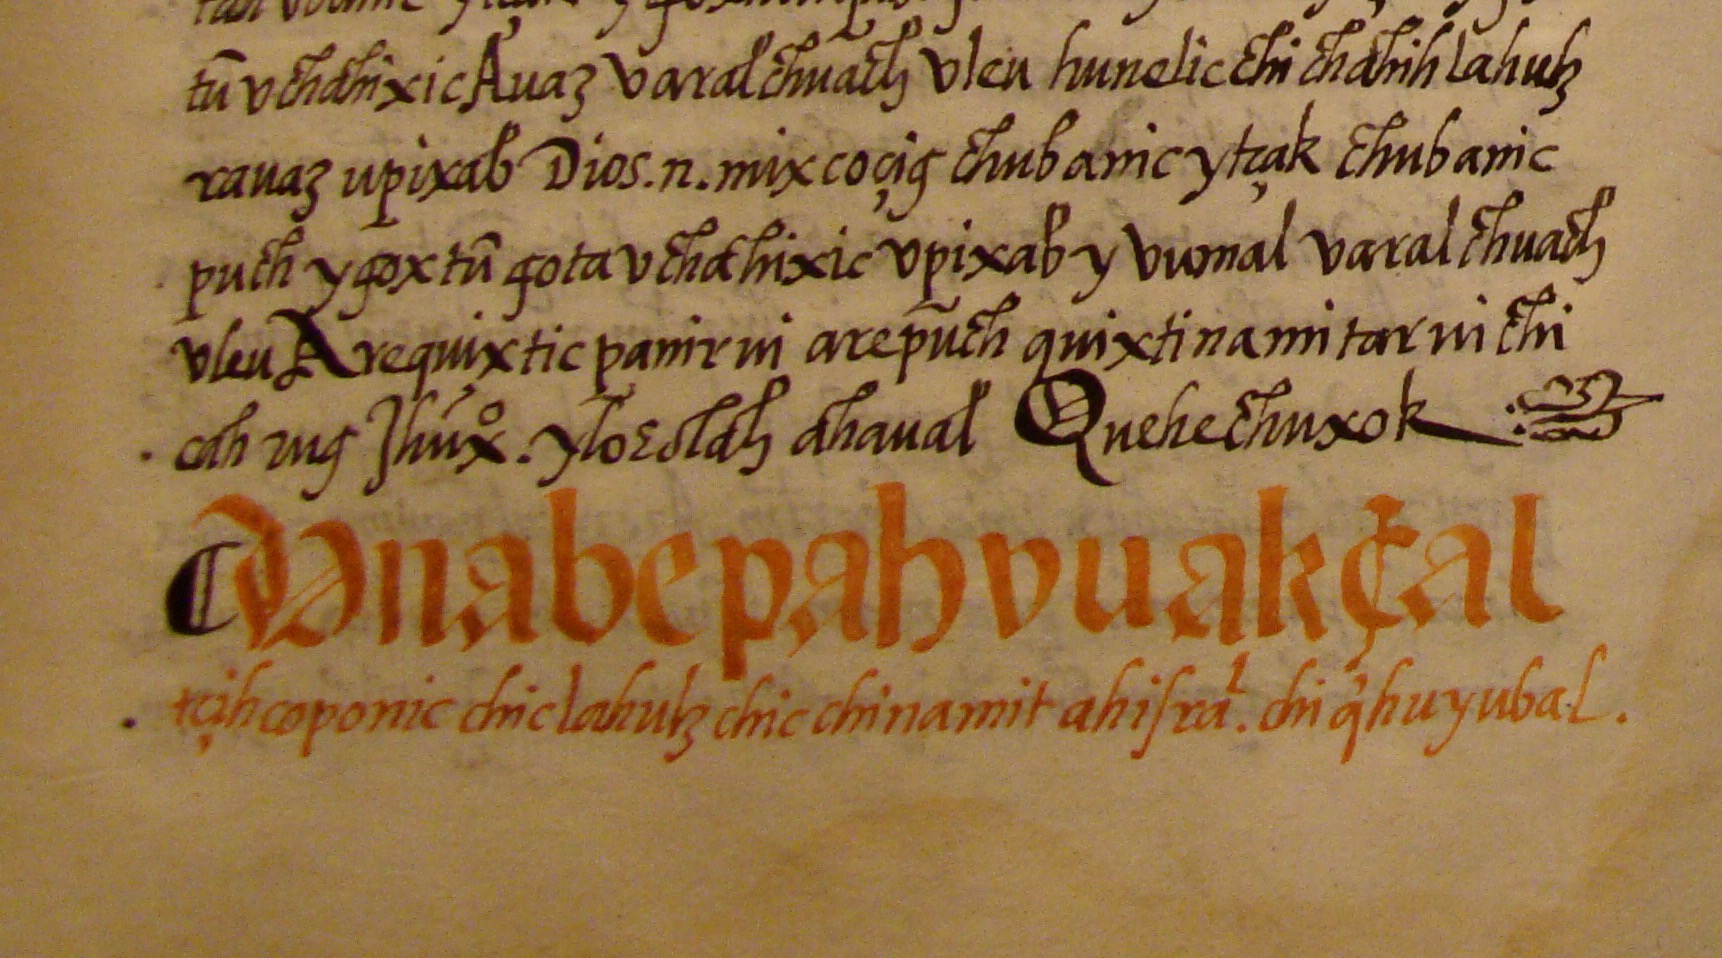 tū v chahixic Auaꜫ varal chuach vleu hunelic chi chahih lahuh
rauaꜫ upixab Dios. n. mix coçig chubanic ytçak chubanic
puch ygox tū gota v chahixic vpixab y vumal varal chuach
vleu Arequix tic panir ui are pūch quix tinamitar ui chi
cah rug Jhūxº. yloꜫolah ahaual Quehe chuxok
Vnabe pah vuakçal
tçih coponic chic lahuh chic chinamit ah iſral. chi q̓huyubal.